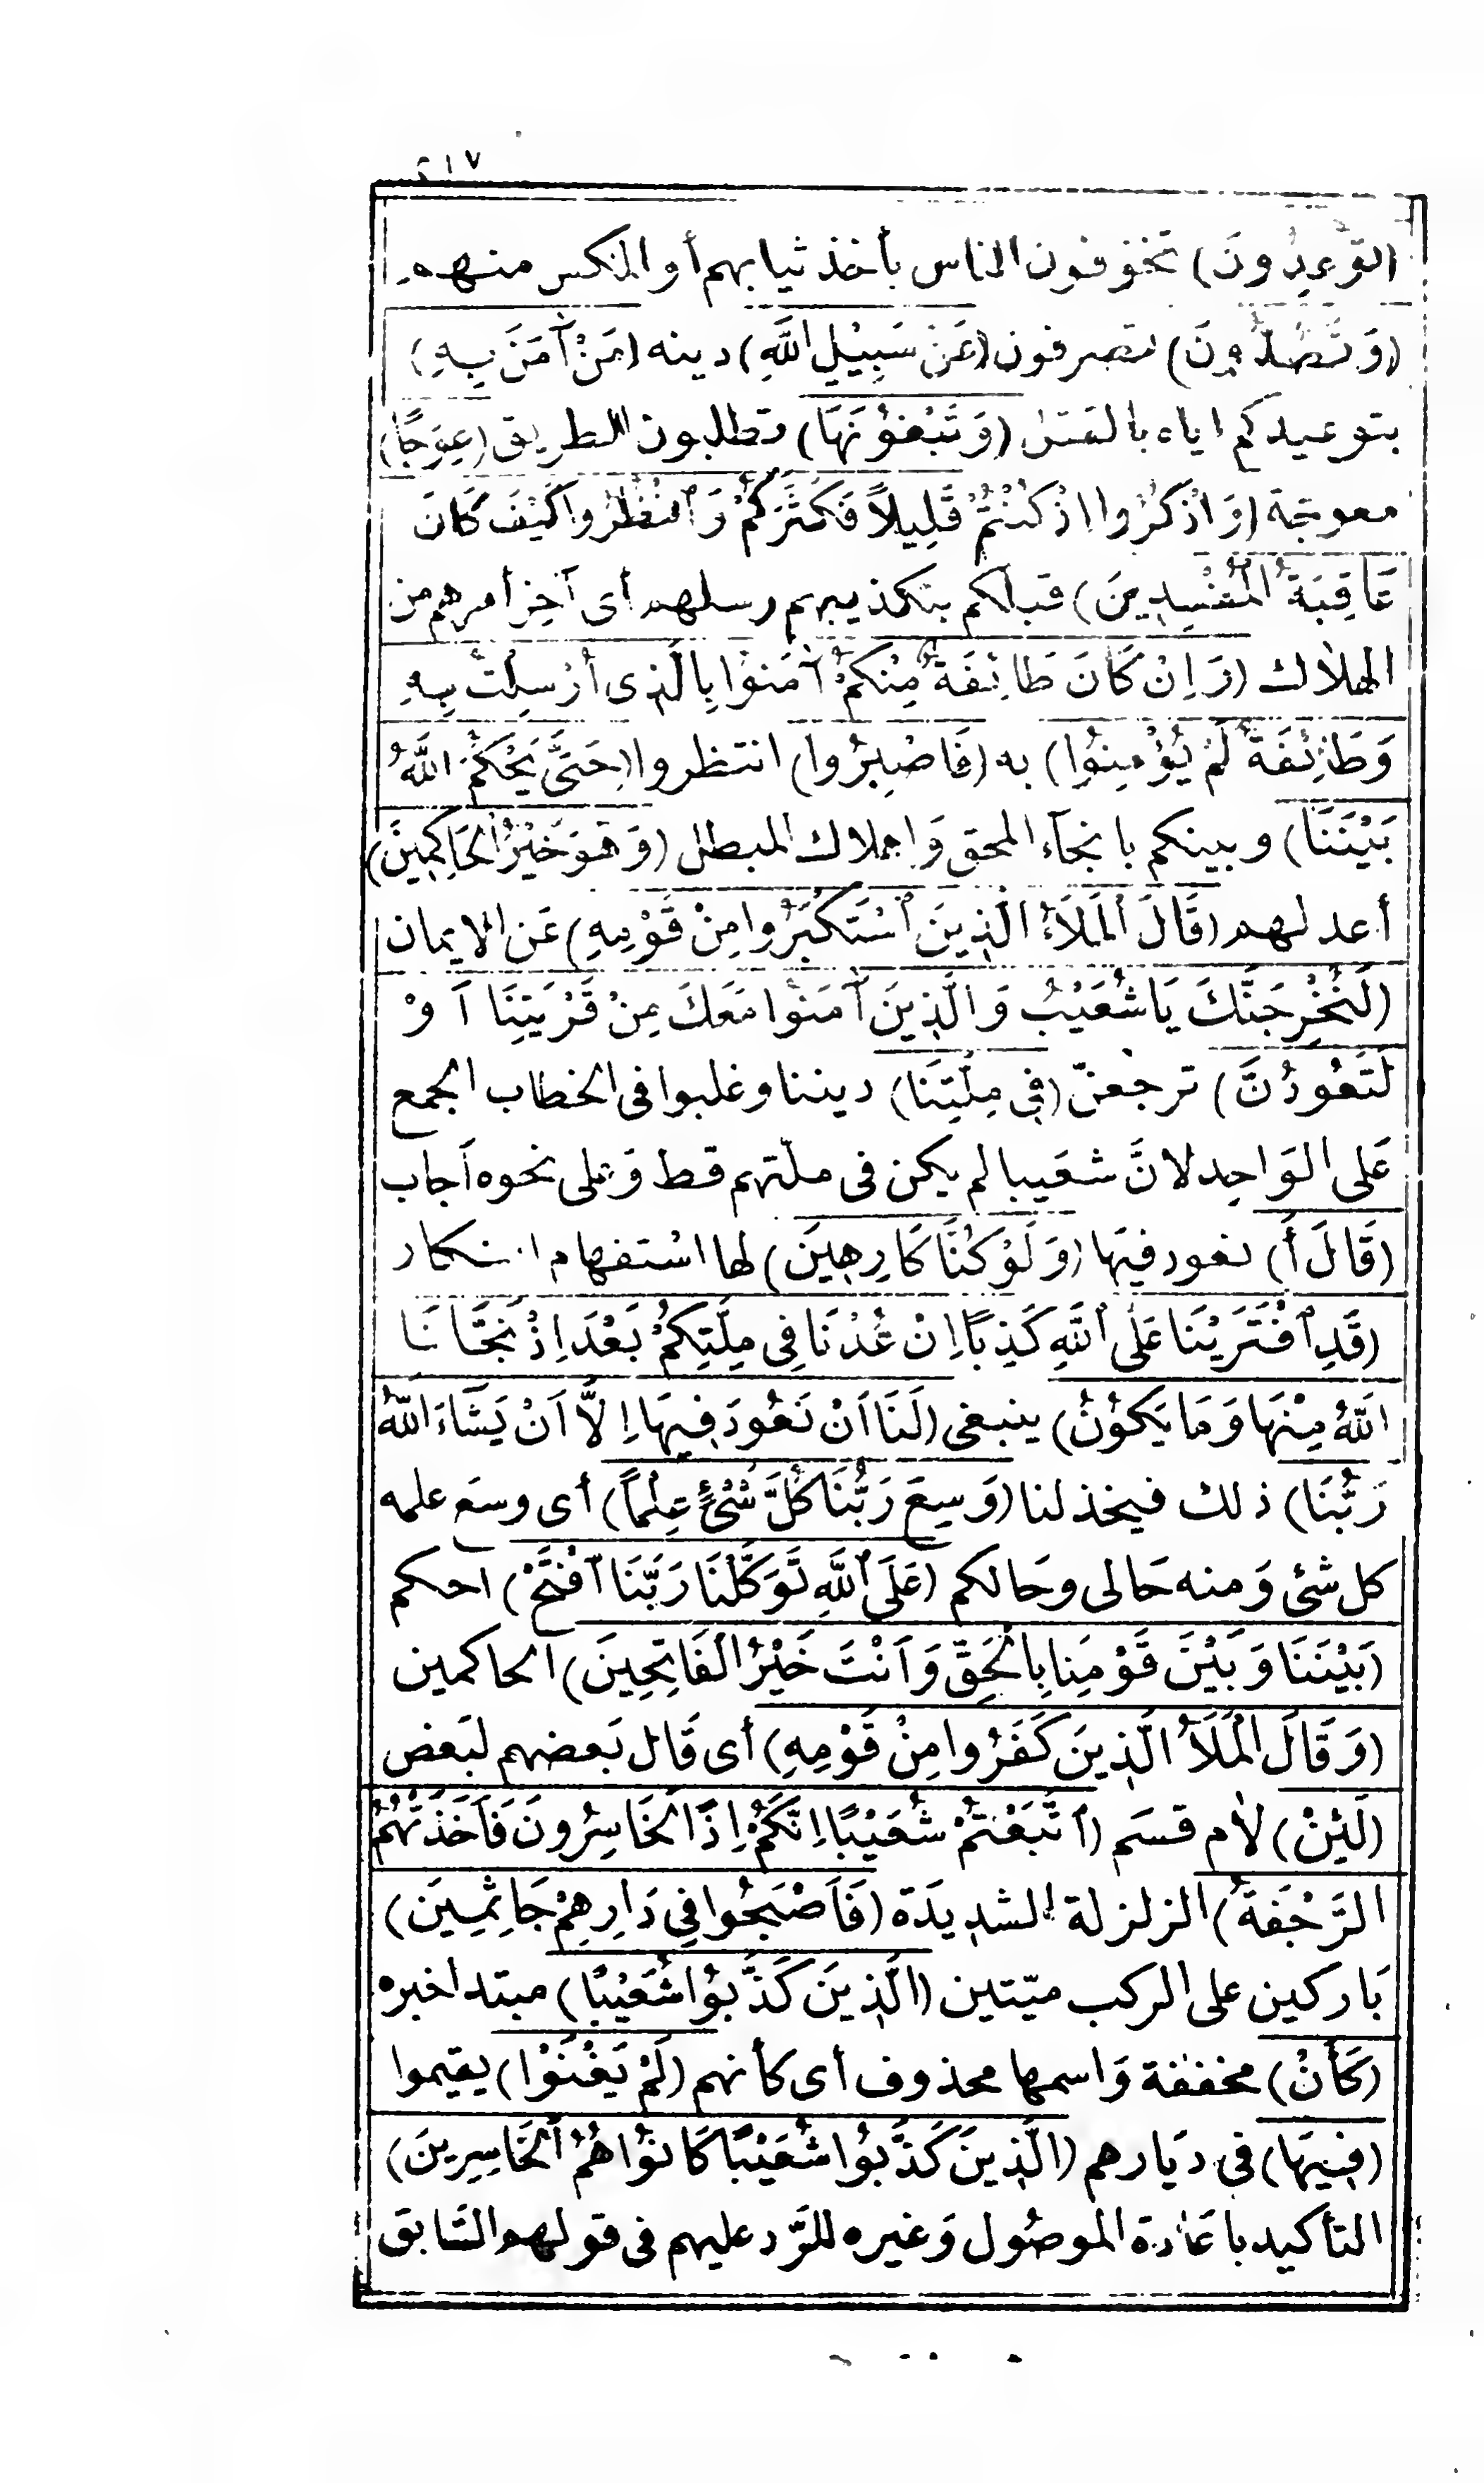 ٢١٧
(تُوعِدُونَ) تخوفون الناس بأخذ ثيابهم أو المكس منهم
(وَتَصُدُّونَ) تصرفون (عَنْ سَبِيْلِ اللَّهِ) دينه (مَنْ آمَنَ بِهِ)
بتوعيدكم اياه بالقتل (وَتَبْغُوْنَهَا) تطلبون الطريق (عِوَجًا)
معوجّة (وَاذْكُرُوا اِذْ كُنْتُمْ قَلِيلاً فَكَثَّرَكُمْ وَٱنْظُرُوا كَيْفَ كَانَ
عَاقِبَةُ الْمُفْسِدِينَ) قبلكم بتكذيبهم رسلهم أى آخِر أمرهم من
الهلاك (وَاِنْ كَانَ طَائِفَةٌ مِنْكُمْ آمَنُوْا بِالَّذِى أُرْسِلْتُ بِهِ
وَطَائِفَةٌ لَمْ يُؤْمِنُوْا) به (فَاصْبِرُوا) انتظروا (حَتَّى يَحْكُمَ اللَّهُ
بَيْنَنَا) وبينكم بانجآء المحق وَاهلاك المبطل (وَهُوَ خَيْرُ الْحَاكِمِينَ)
أعدلهم (قَالَ الْمَلَأُ الَّذِينَ ٱسْتَكْبَرُوا مِنْ قَوْمِهِ) عَن الايمان
(لَنُخْرِجَنَّكَ يَا شُعَيْبُ وَالَّذِينَ آمَنُوْا مَعَكَ مِنْ قَرْيَتِنَا اَوْ
لَتَعُوْدُنَّ) ترجعنّ (فِى مِلَّتِنَا) ديننا وغلبوا فى الخطاب الجمع
عَلى الوَاحِد لانَّ شعَيبا لم يكن فى ملّتهم قط وَعلى نحوه اَجاب
(قَالَ أَ) نعود فيهَا (وَلَوْ كُنَّا كَارِهِينَ) لها اسْتفهام انكار
(قَدِ ٱفْتَرَيْنَا عَلَى ٱللَّهِ كَذِبًا اِنْ عُدْنَا فِى مِلَّتِكُمْ بَعْدَ اِذْ نَجَّانَا
اللّٰهُ مِنْهَا وَمَا يَكُوْنُ) ينبغى (لَنَا اَنْ نَعُوْدَ فِيهَا اِلاَّ اَنْ يَشَاءَ اللّٰهُ
رَبُّنَا) ذلك فيخذلنا (وَسِعَ رَبُّنَا كُلَّ شَئٍْ عِلْمًا) أى وسعَ علمه
كل شئ وَمنه حَالى وحَالكم (عَلَى ٱللَّهِ تَوَكَّلْنَا رَبَّنَا ٱفْتَحْ) احكم
(بَيْنَنَا وَبَيْنَ قَوْمِنَا بِالْحَقِّ وَاَنْتَ خَيْرُ الْفَاتِحِينَ) الحاكمين
(وَقَالَ الْمَلَأُ الَّذِينَ كَفَرُوا مِنْ قَوْمِهِ) أى قَال بَعضهم لبَعض
(لَئِنْ) لام قسَم (ٱتَّبَعْتُمْ شُعَيْبًا اِنَّكُمْ اِذًا لَخَاسِرُونَ فَاَخَذَتْهُمُ
الرَّجْفَةُ) الزلزلة الشدِيدَة (فَاَصْبَحُوا فِى دَارِهِمْ جَاثِمِينَ)
بَاركين على الركب ميّتين (الَّذِينَ كَذَّبُوْا شُعَيْبًا) مبتدا خبره
(كَأَنْ) مخففة وَاسمها محذوف أى كأنهم (لَمْ يَغْنَوْا) يقيموا
(فِيْهَا) فى ديَارهم (الَّذِينَ كَذَّبُوْا شُعَيْبًا كَانُوْا هُمُ الْخَاسِرِينَ)
التأكيد باعَادة الموصُول وَغيره للرَّد عليهم فى قولهم السَّابق